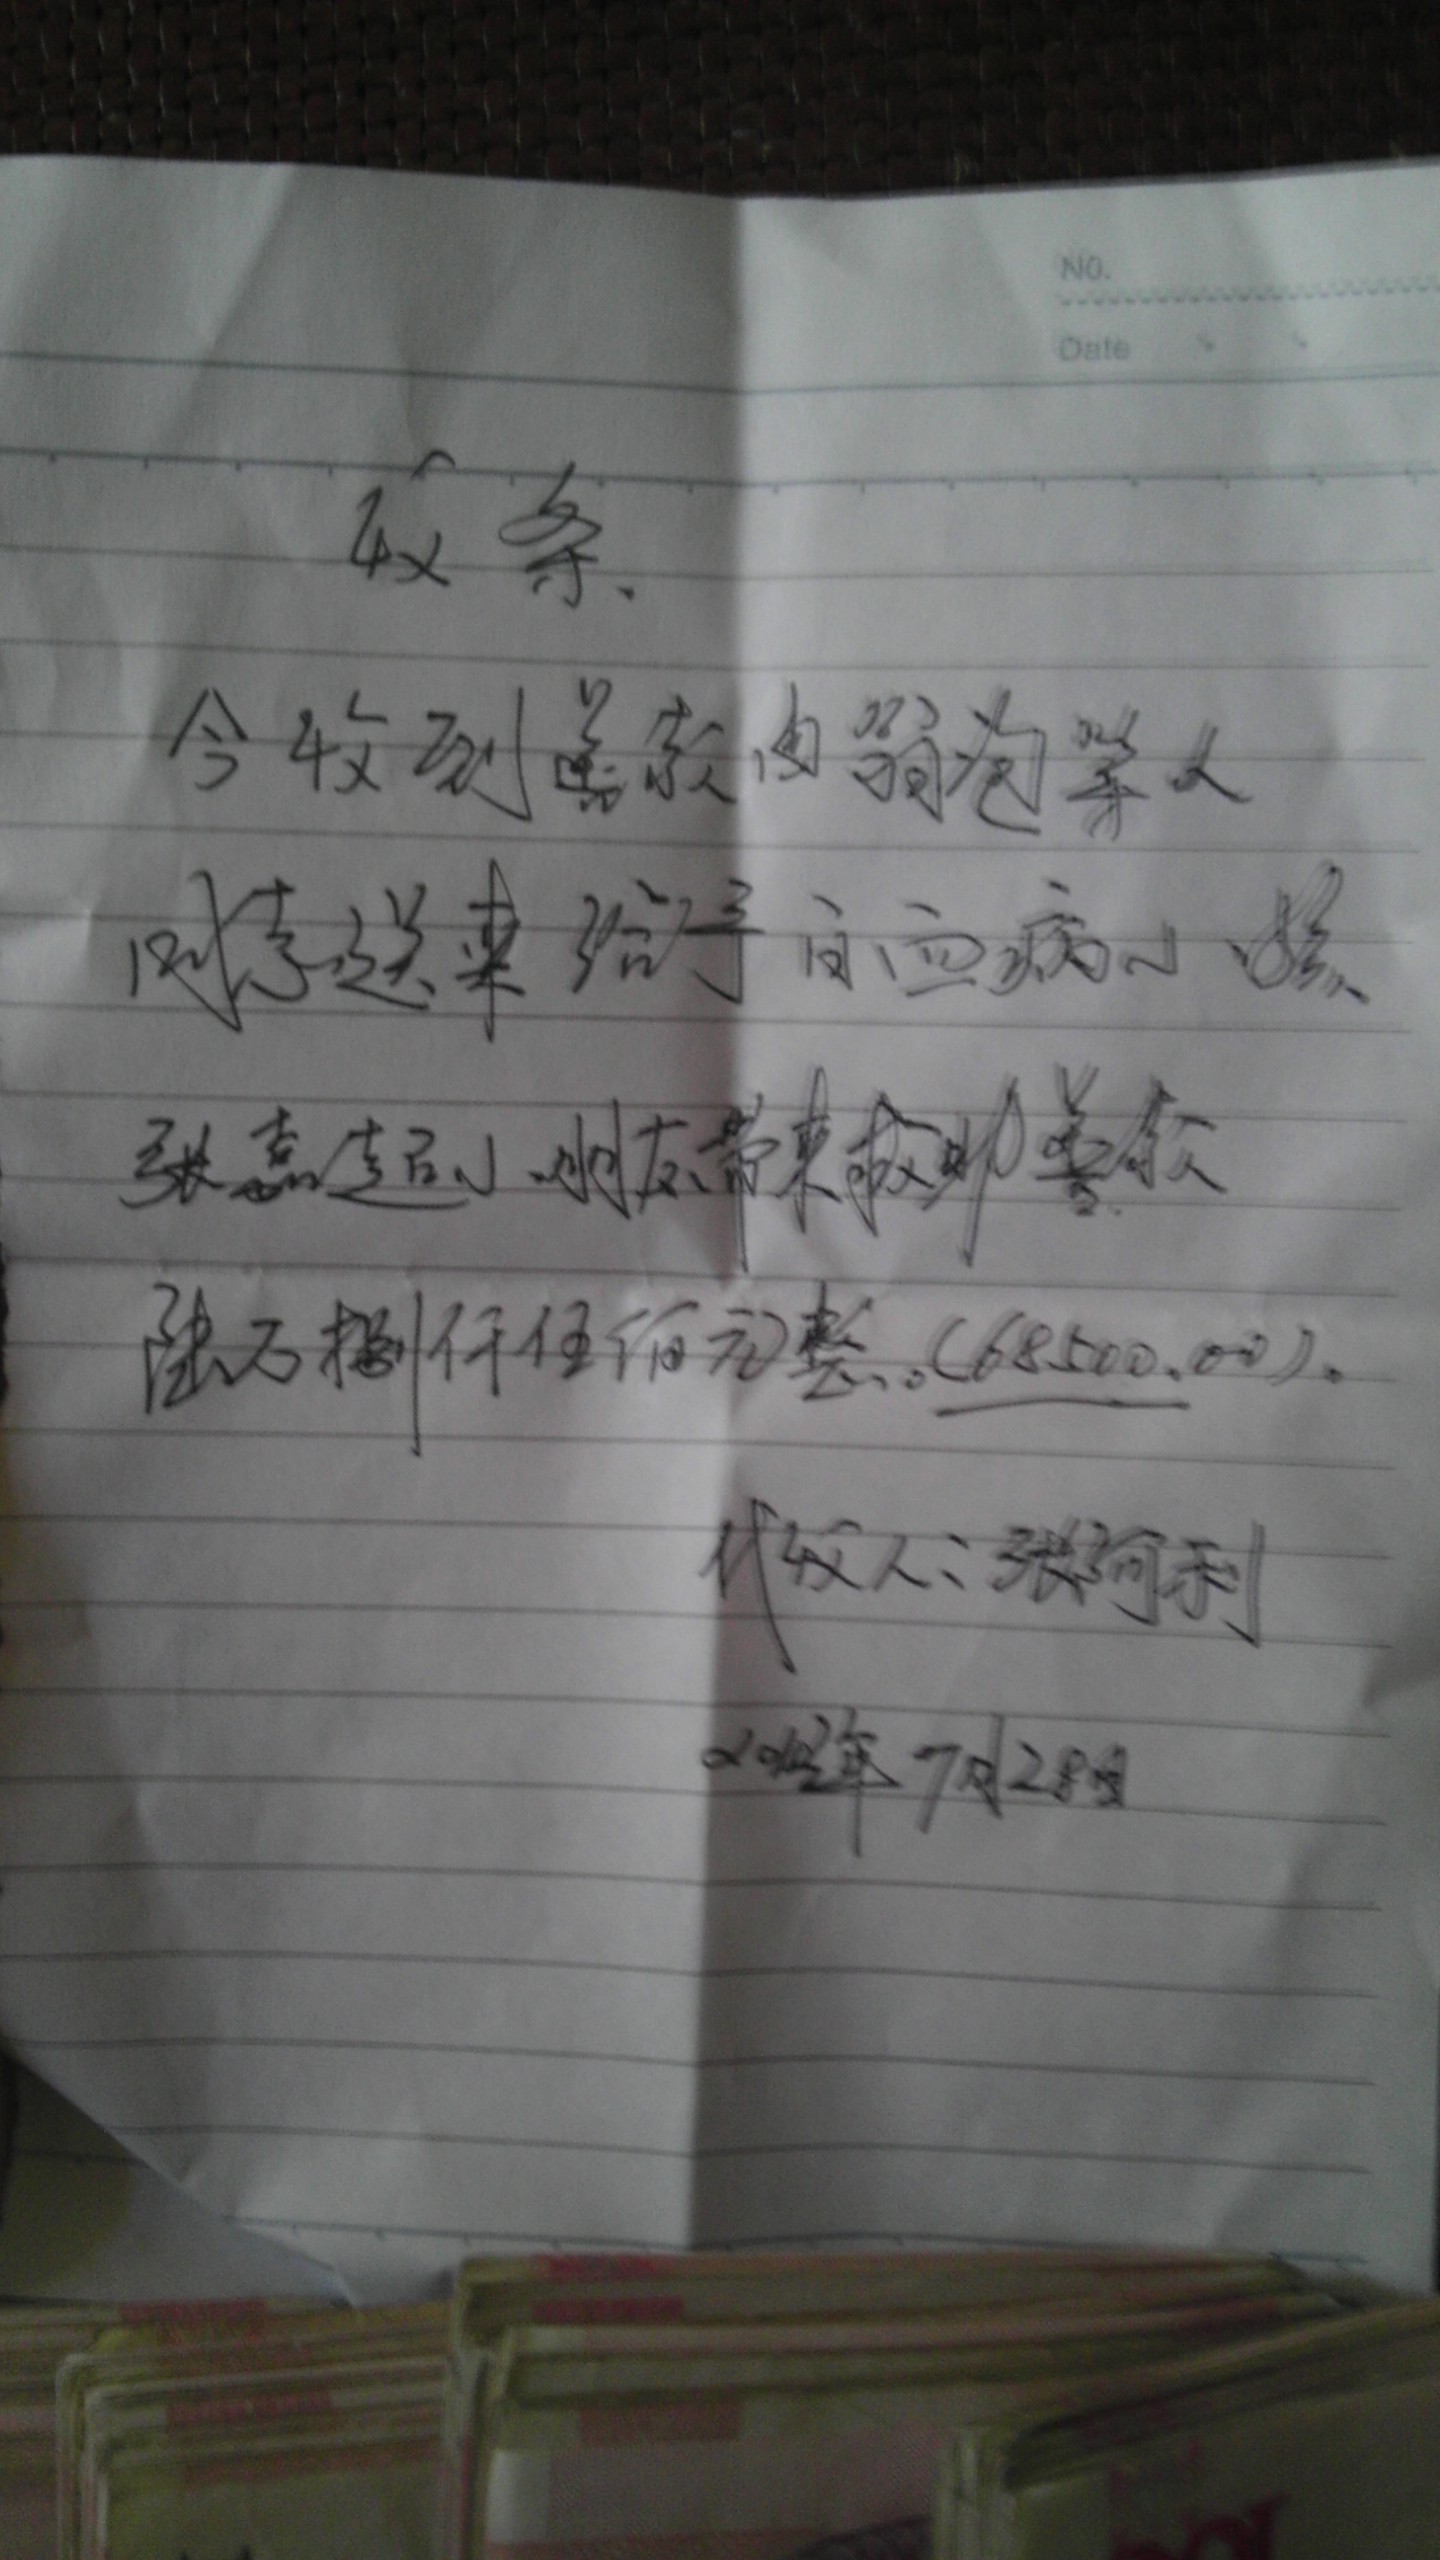 No.
Date
收条.
今收到善款由 等人
同志送来给予白血病小孩.
张嘉超小朋友带来救助善款
陆万捌仟伍佰元整.(68500.00).
代收人:张河利
2012年7月28日